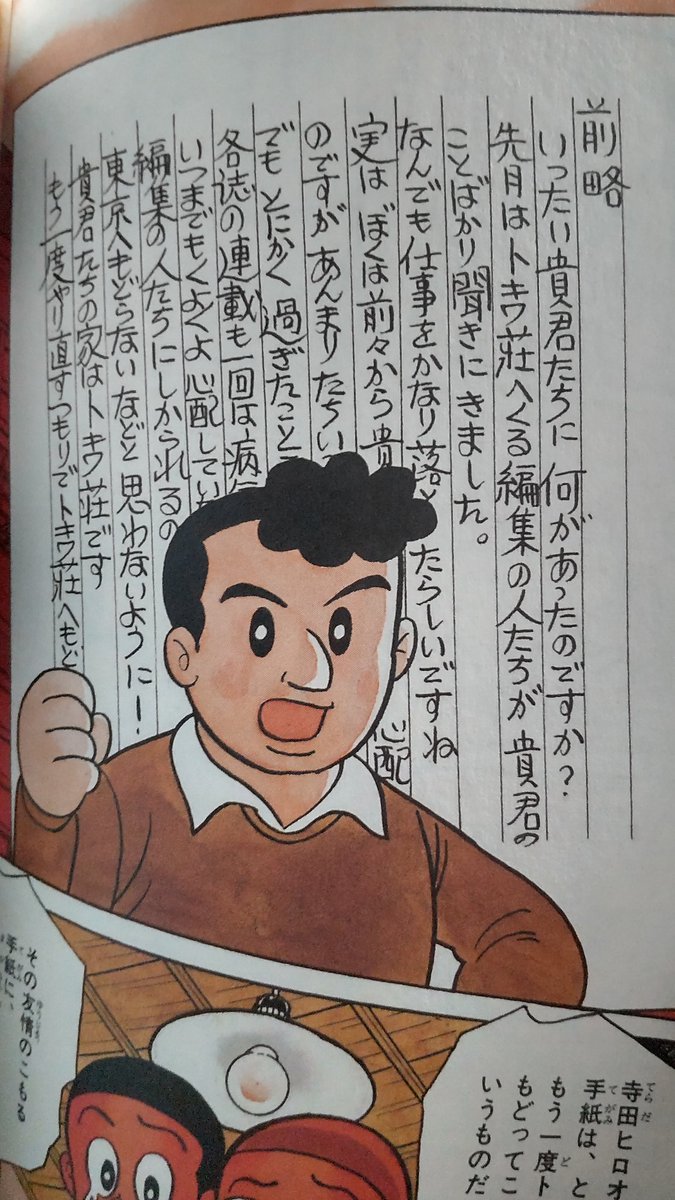 前略
いったい貴君たちに何があったのですか?
先月はトキワ荘へくる編集の人たちが貴君の
ことばかり聞きにきました。
なんでも仕事をかなり落と たらしいですね
実はぼくは前々から貴 心配
のですがあんまりたちい
でもとにかく過ぎたこと
各誌の連載も一回は病
いつまでもくよくよ心配してい
編集の人たちにしかられるの
東京へもどらないなどと思わないように!
貴君たちの家はトキワ荘です
もう一度やり直すつもりでトキワ荘へもど
寺田ヒロオ
手紙は、と
もう一度ト
もどってこ
いうものだ
その友情のこもる
手紙に、